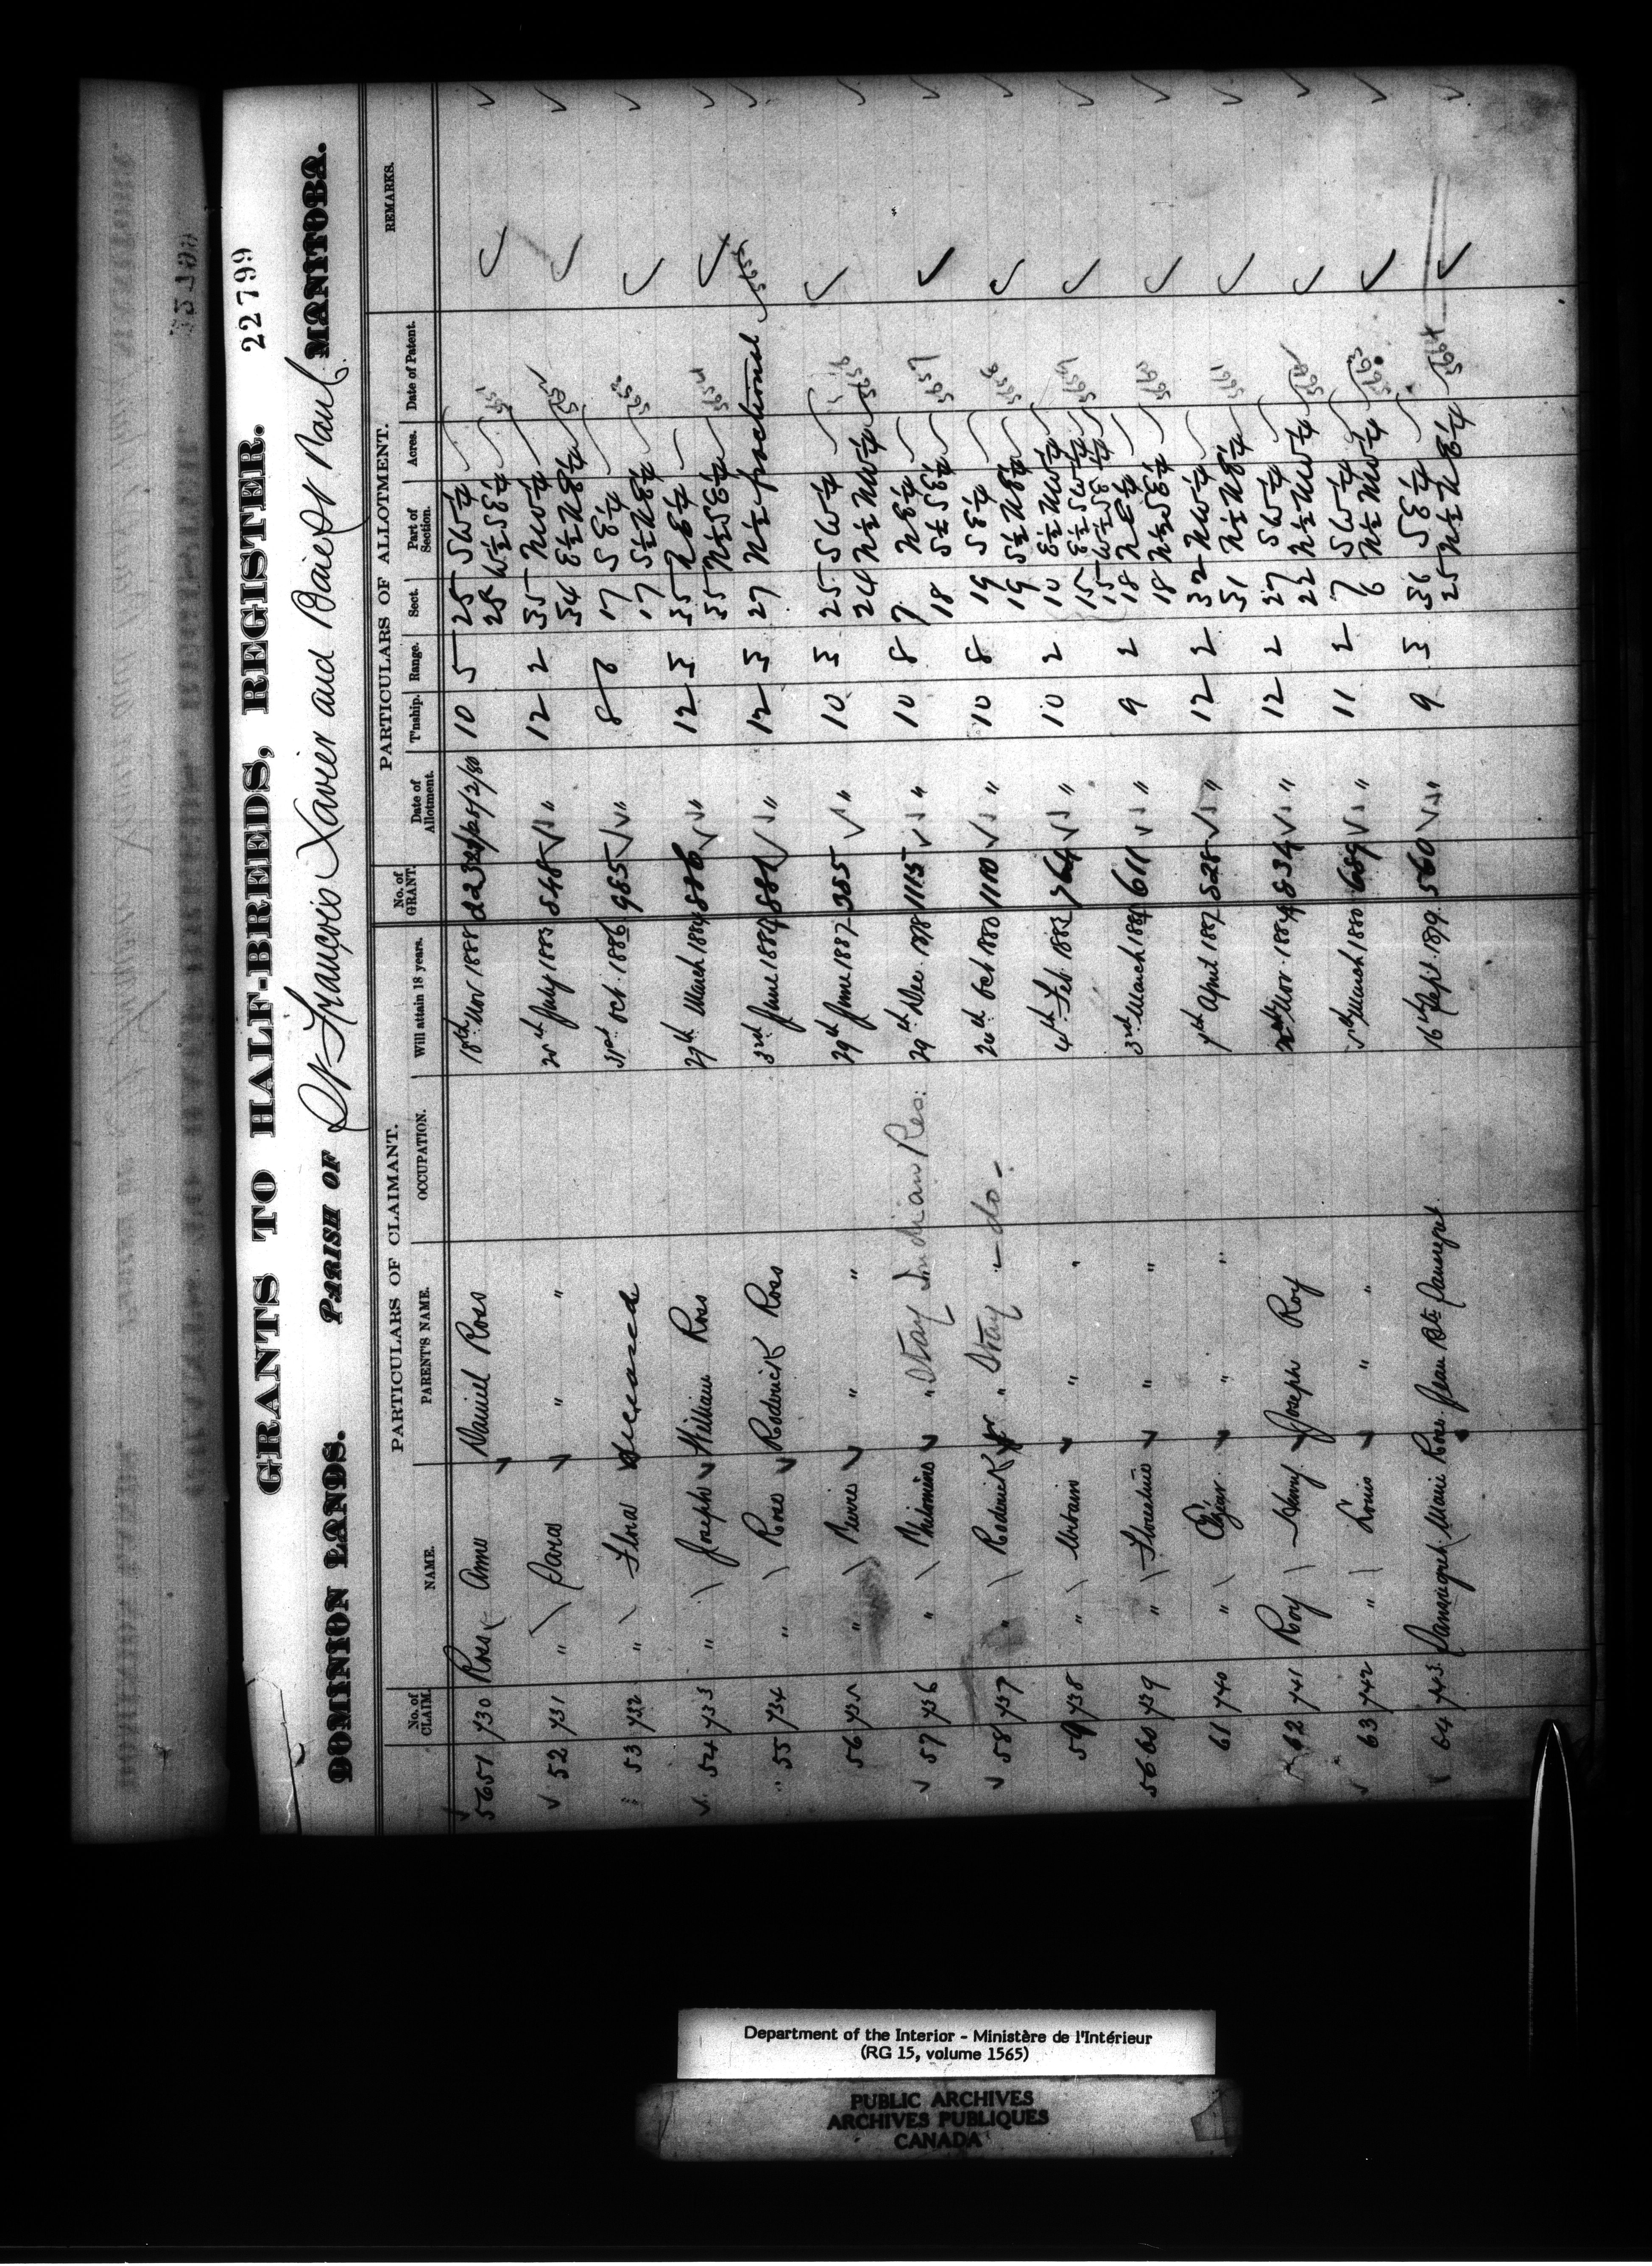 GRANTS TO HALF-BREEDS, REGISTER. 22799
DOMINION LANDS. PARISH OF St François Xavier and Baie St Paul MANITOBA.
PARTICULARS OF CLAIMANT. PARTICULARS OF ALLOTMENT.
No. of CLAIM. NAME. PARENT'S NAME. OCCUPATION. Will attain 18 years. No. of GRANT. Date of Allotment. T'nship. Range. Sect. Part of Section. Acres. Date of Patent. REMARKS.
5651 730 Ross Anne Daniel Ross 18th Nov 1888 25/2/80 10 5 25 SW¼
W½ SE¼
52 731 " Sara " " July 1883 848 " 12 2 35 NW¼
34 E½ NE¼
53 732 " Flora deceased 31st Oct. 1886 985 " 8 17 SE¼
17 S½ NE¼
54 733 " Joseph William Ross 27th March 1884 886 " 12 3 35 NE¼
35 N½ SE¼
55 734 " Rose Roderick Ross 3rd June 1884 887 " 12 3 27 N½ fractional
56 735 " Pierre " " 29th June 1887 385 " 10 3 25 SW¼
24 N½ NW¼
57 736 " Philomène " " Stay Indian Res: 29th Dec. 1878 1115 " 10 8 7 NE¼
18 S½ SE¼
58 737 " Roderick Jr " Stay - do - Oct 1880 1110 " 10 8 19 SE¼
19 S½ NE¼
59 738 " Urbain " " 4th Feb 1883 764 " 10 2 10 E½ NW¼
15 E½ SW¼
15 W½ SE¼
5660 739 " Florestine " " 3rd March 1884 611 " 9 2 18 NE¼
18 N½ SE¼
61 740 " " " 7th April 1887 828 " 12 2 32 NW¼
31 N½ NE¼
62 741 Roy Henry Joseph Roy Nov. 1884 834 " 12 2 27 SW¼
22 N½ NW¼
63 742 " Louis " " March 1880 689 " 11 2 7 SW¼
6 N½ NW¼
64 743 Marie Rose Jean Bte 16th Sept. 1879 560 " 9 3 36 SE¼
25 N½ NE¼
Department of the Interior - Ministère de l'Intérieur
(RG 15, volume 1565)
PUBLIC ARCHIVES
ARCHIVES PUBLIQUES
CANADA